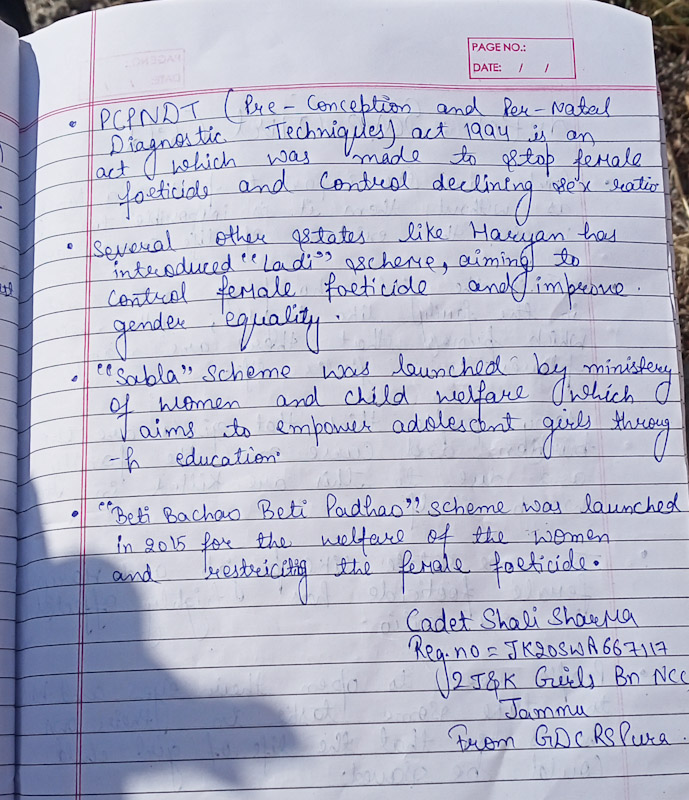 PAGE NO.:
DATE: / /
• PCPNDT (Pre-Conception and Per-Natal
Diagnostic Techniques) act 1994 is an
act which was made to stop female
foeticide and control declining sex ratio
• Several other states like Haryan has
introduced "Ladi" scheme, aiming to
control female foeticide and improve.
gender equality.
• "Sabla" scheme was launched by ministery
of women and child welfare which
aims to empower adolescent girls throug
-h education.
• "Beti Bachao Beti Padhao" scheme was launched
in 2015 for the welfare of the women
and restriciting the female foeticide.
Cadet Shali Sharma
Reg.no = JK20SWA667117
2 J&K Girls Bn NCC
Jammu
From GDC RS Pura.